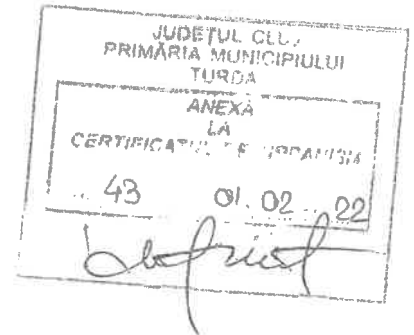 JUDEȚUL CLUJ
PRIMĂRIA MUNICIPIULUI
TURDA
ANEXĂ
LA
CERTIFICATUL DE URBANISM
43 01.02 22